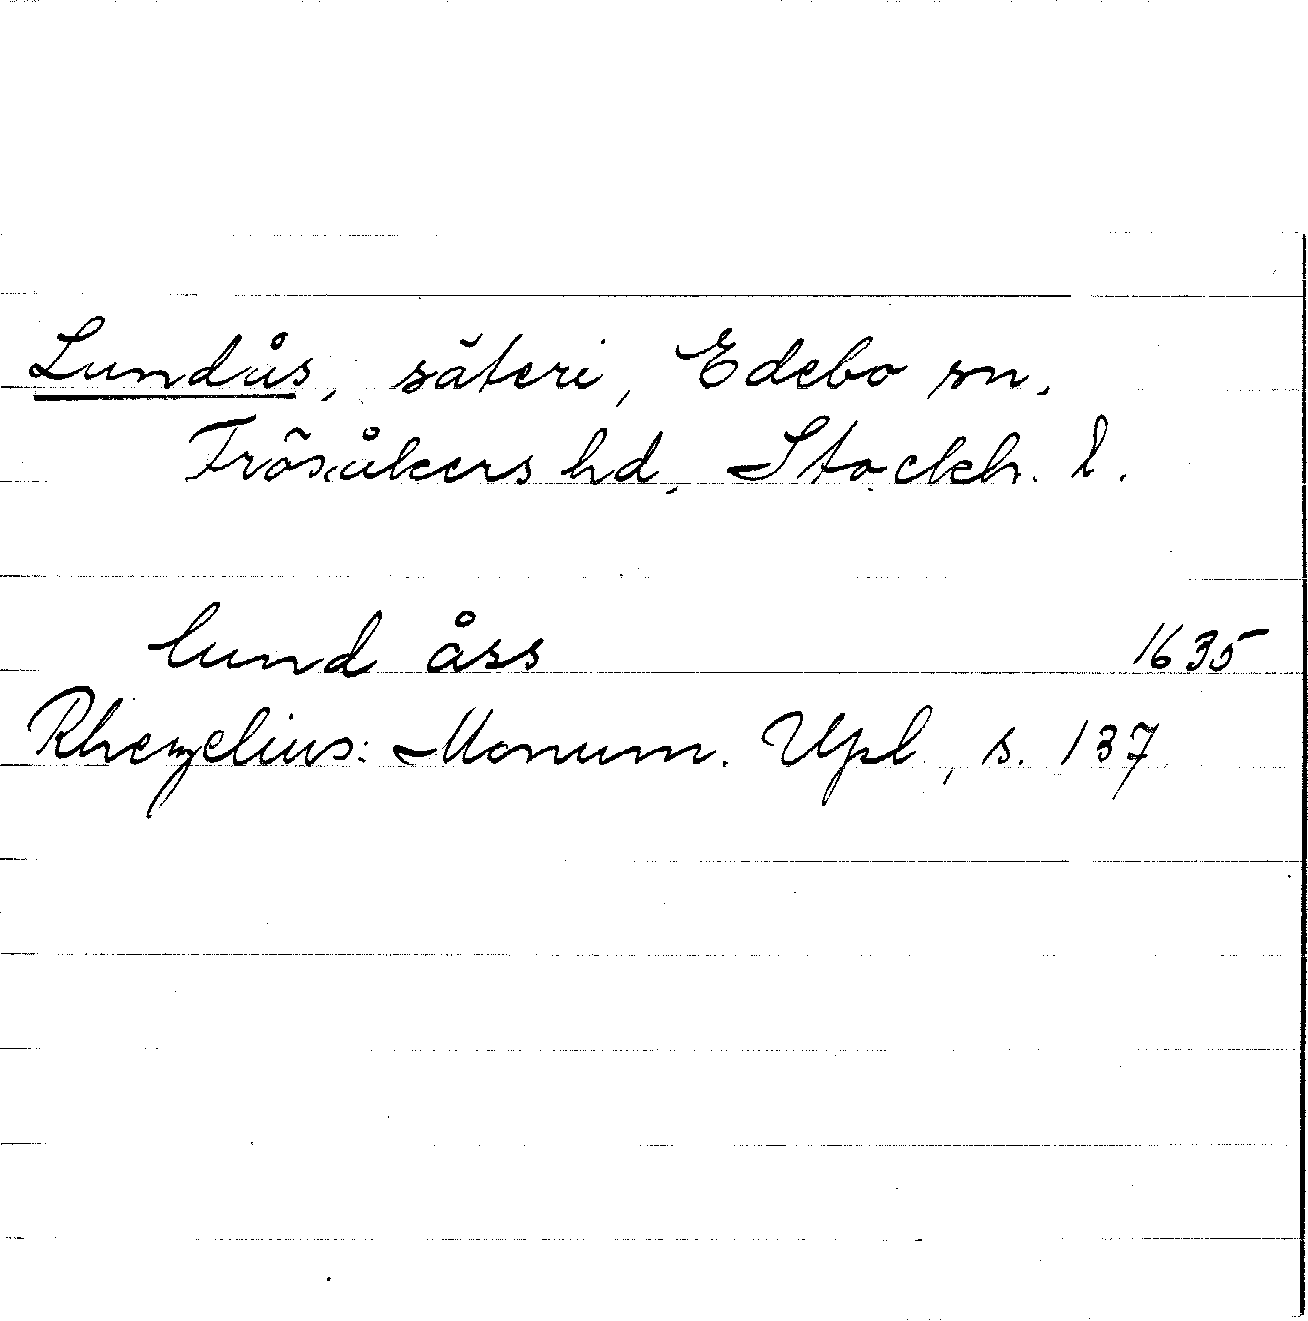 Lundås, säteri, Edebo sn.
Frösåkers hd, Stockh. l.
lund åss 1635
Rhezelius: Monum. Upl, s. 137